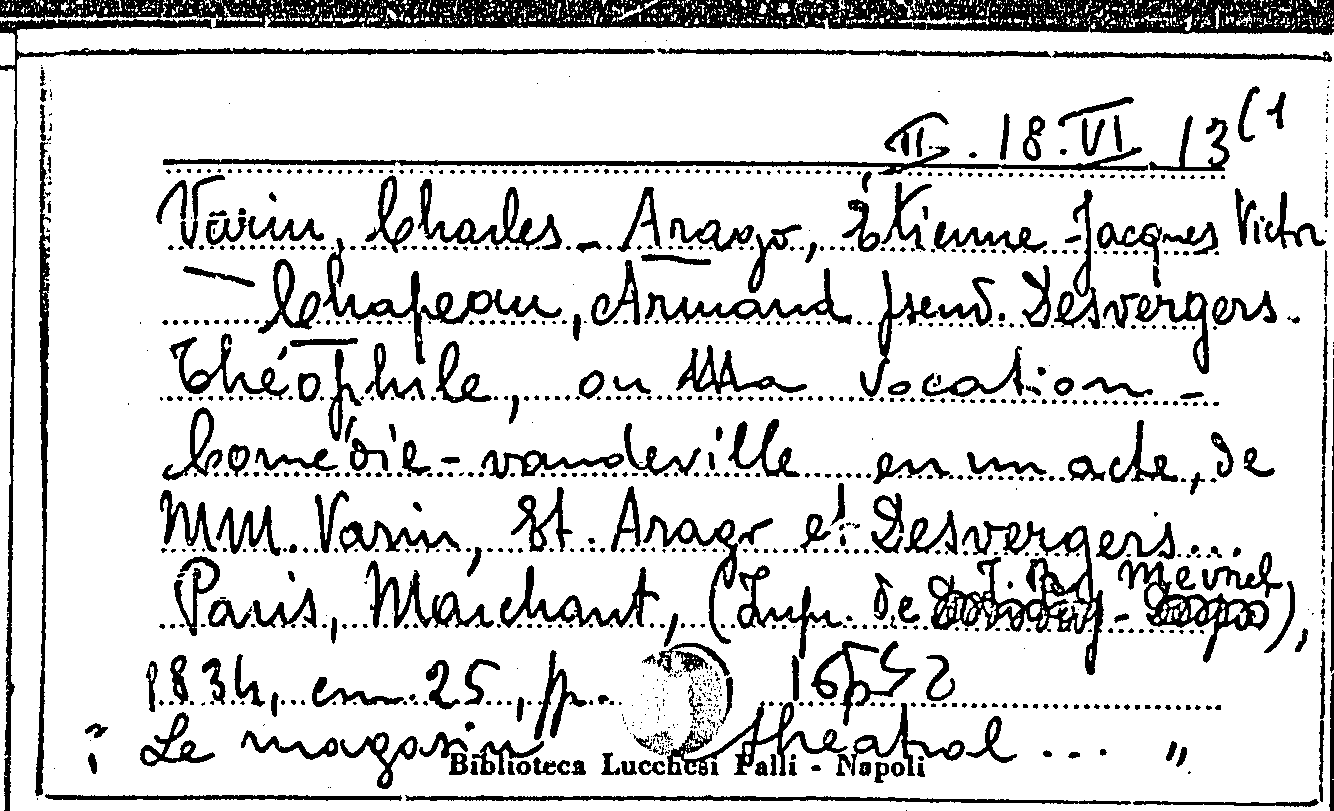 II. 18. VI. 13 (1
Varin, Charles - Arago, Étienne - Jacques Victor
- Chapeau, Armand pseud. Desvergers.
Théophile, ou Ma vocation -
Comédie-vaudeville en un acte, de
MM. Varin, Et. Arago et Desvergers...
Paris, Marchant, (Impr. de J. R. Mevrel),
1834, cm. 25, pp.
i Le magasin théatral ... "
Biblioteca Lucchesi Palli - Napoli